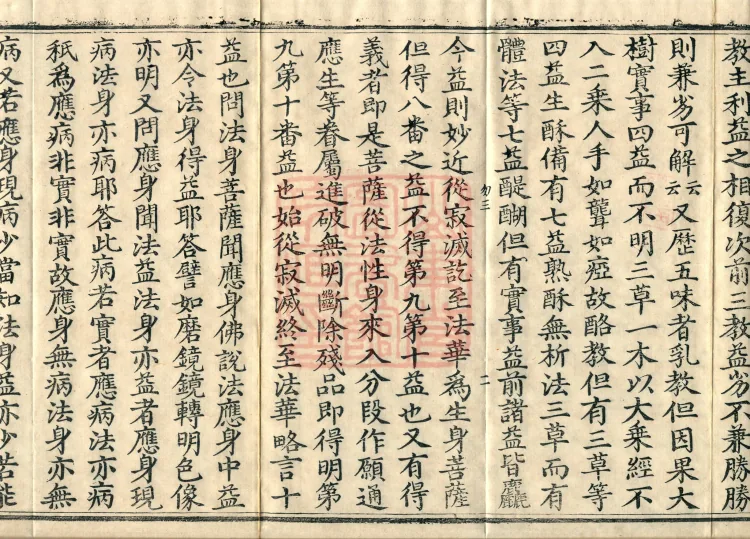 教主利益之相復次前三教益劣不兼勝勝
則兼劣可解云云又歷五味者乳教但因果大
樹實事四益而不明三草一木以大乘經不
入二乘人手如聾如瘂故酪教但有三草等
四益生酥備有七益熟酥無析法三草而有
體法等七益醍醐但有實事益前諸益皆麤
今益則妙近從寂滅訖至法華為生身菩薩
但得八番之益不得第九第十益也又有得
義者即是菩薩從法性身來入分段作願通
應生等眷屬進破無明斷除殘品即得明第
九第十番益也始從寂滅終至法華略言十
益也問法身菩薩聞應身佛說法應身中益
亦令法身得益耶答譬如磨鏡鏡轉明色像
亦明又問應身聞法益法身亦益者應身現
病法身亦病耶答此病若實者應病法亦病
秖為應病非實非實故應身無病法身亦無
病又若應身現病少當知法身益亦少若能